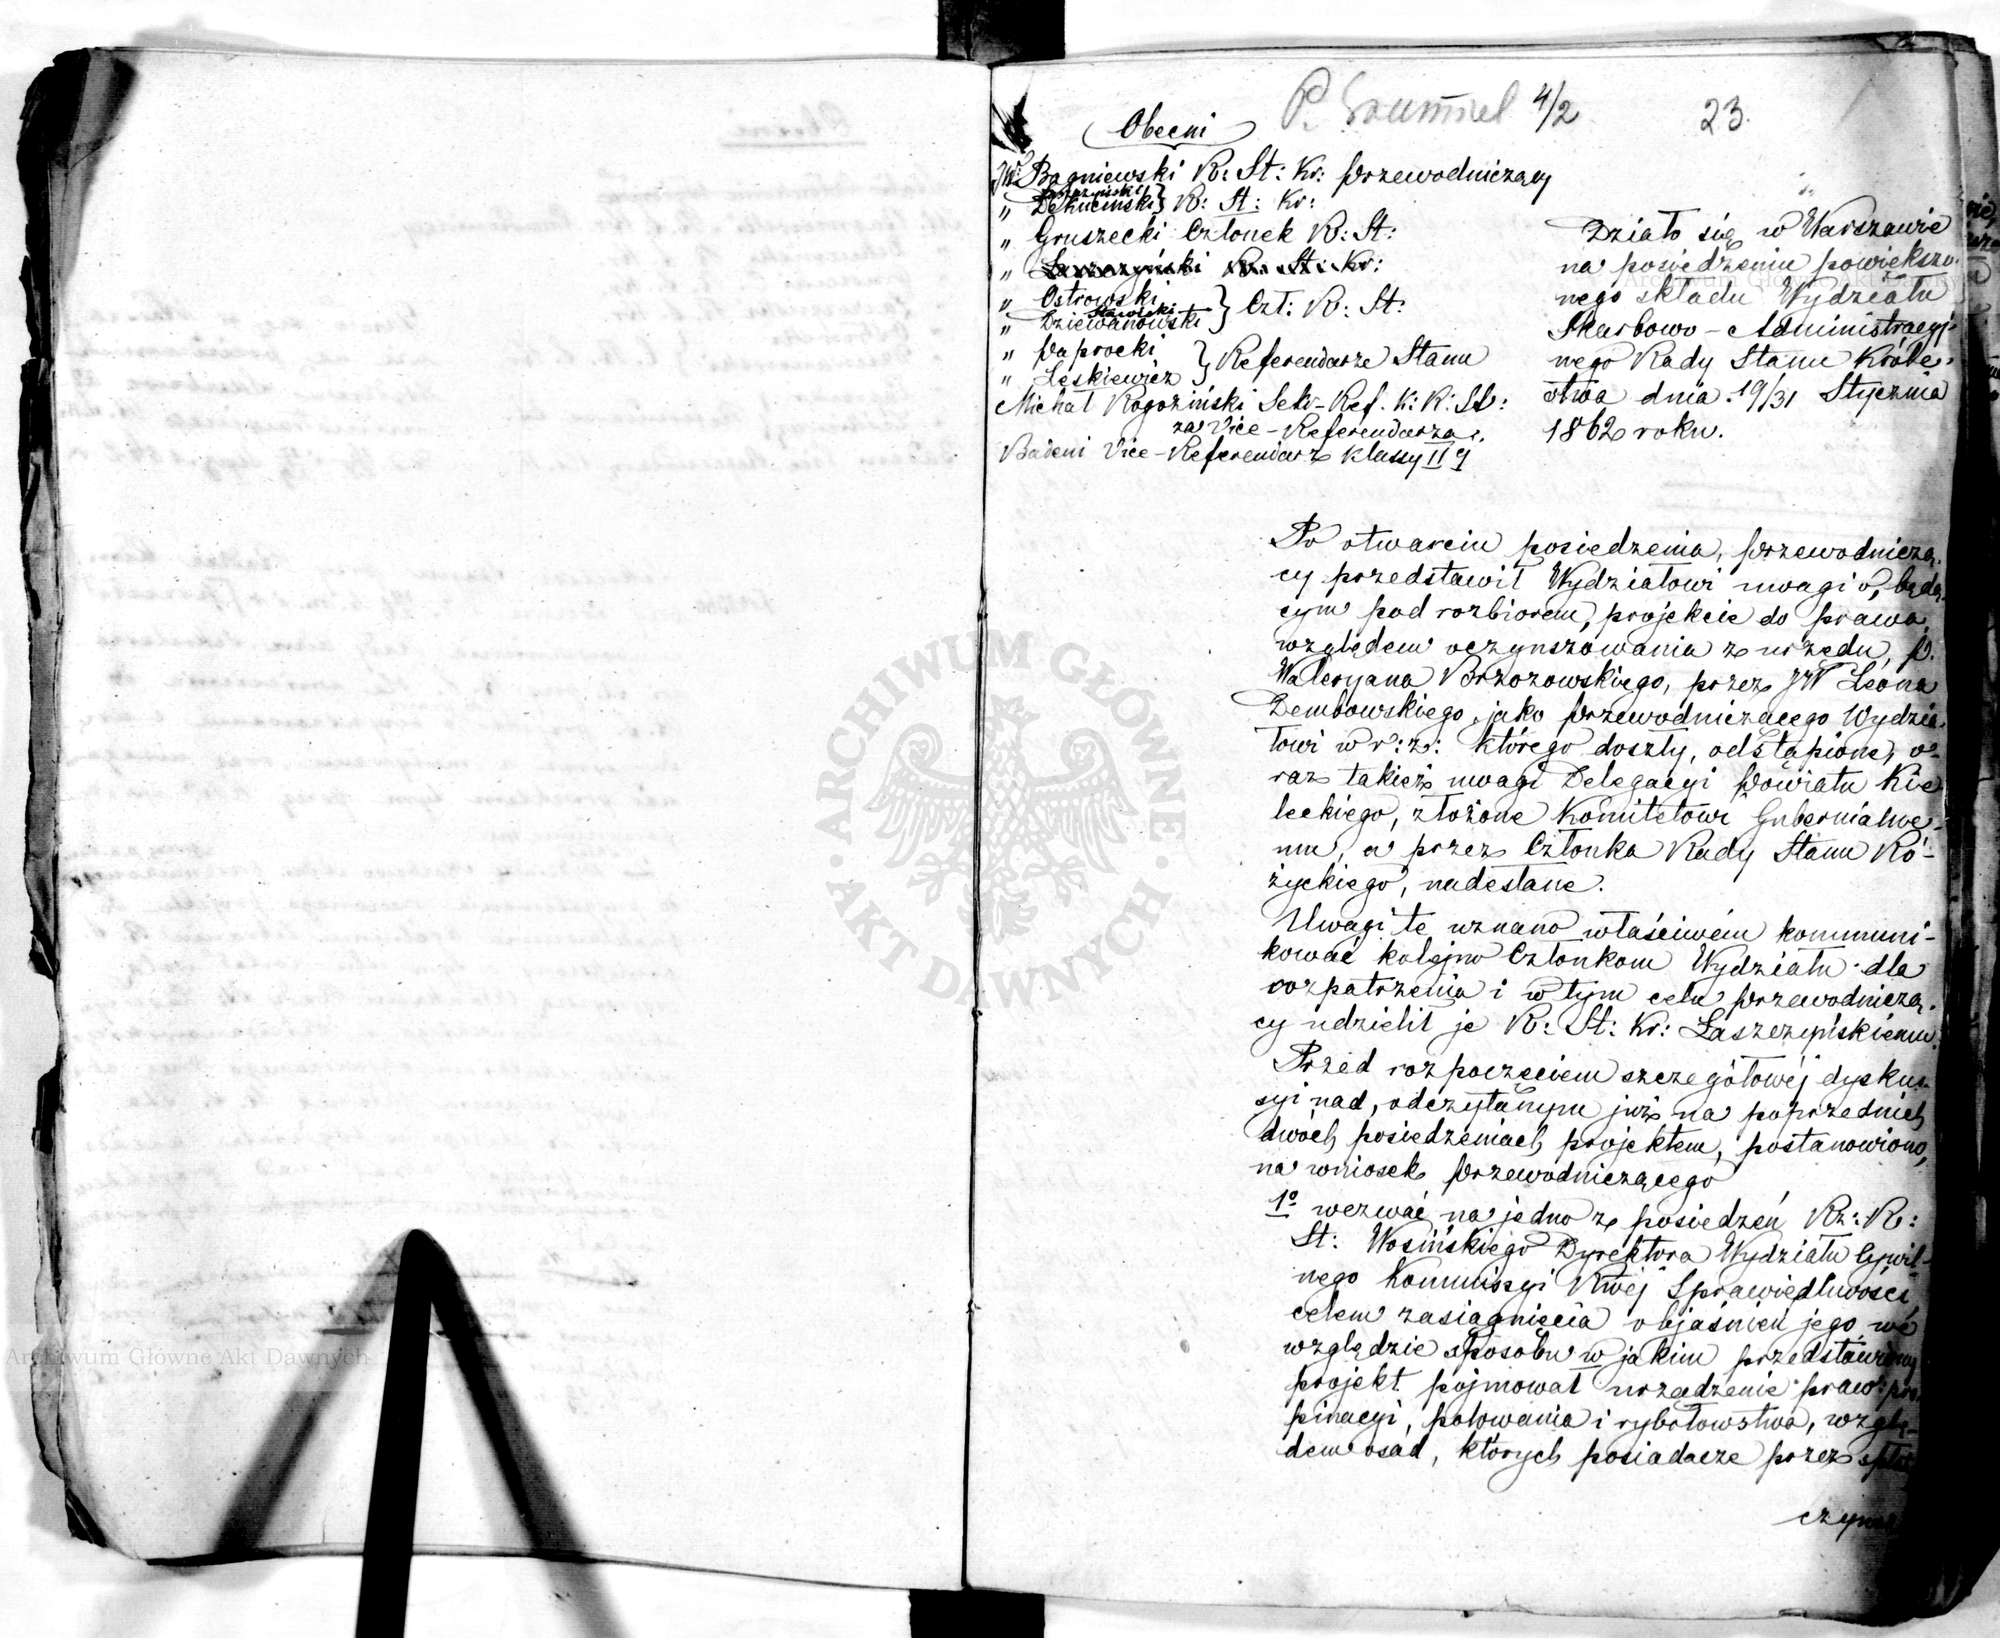 4/2
23.
Obecni
JW Bagniewski R: St: Kr: Przewodniczący
Łaszczyński
" Dekuciński } R: St: Kr:
" Gruszecki Członek R: St:
" Łaszczyński R: St: Kr:
" Ostrowski
Sławiński
" Dziewanowski } Czł: R: St:
" Paprocki
" Leskiewicz } Referendarze Stanu
Michał Rogoziński Sekr-Ref. K: R: St:
za Vice-Referendarza.
Badeni Vice-Referendarz klassy II ej
Działo się w Warszawie
na posiedzeniu powiększo-
nego składu Wydziału
Skarbowo-Administracyj-
nego Rady Stanu Króle-
stwa dnia 19/31 Stycznia
1862 roku.
Po otwarciu posiedzenia, przewodniczą-
cy przedstawił Wydziałowi uwagi o, będą-
cym pod rozbiorem, projekcie do prawa,
względem oczynszowania z urzędu, p.
Waleryana Brzozowskiego, przez JW Leona
Dembowskiego, jako Przewodniczącego Wydzia-
łowi w r: z: którego doszły, odstąpione, o-
raz takież uwagi Delegacyi Powiatu Kie-
leckiego, złożone Komitetowi Gubernialne-
mu, a przez Członka Rady Stanu Ró-
życkiego, nadesłane.
Uwagi te uznano właściwém kommuni-
kować kolejno Członkom Wydziału dla
rozpatrzenia i w tym celu przewodniczą-
cy udzielił je R: St: Kr: Łaszczyńskiemu.
Przed rozpoczęciem szczegółowéj dysku-
syi nad, odczytanym już na poprzednich
dwóch posiedzeniach projektem, postanowiono,
na wniosek Przewodniczącego
1º wezwać na jedno z posiedzeń Rz: R:
St: Wosińskiego Dyrektora Wydziału Cywil-
nego Kommissyi Rwéj Sprawiedliwości,
celem zasiągnięcia objaśnień jego, we
względzie sposobu w jakim przedstawiony
projekt pojmował urządzenie praw: pro-
pinacyi, polowania i rybołowstwa, wzglę-
dem osad, których posiadacze przez
Archiwum Główne Akt Dawnych
Archiwum Główne Akt Dawnych
ARCHIWUM GŁÓWNE AKT DAWNYCH